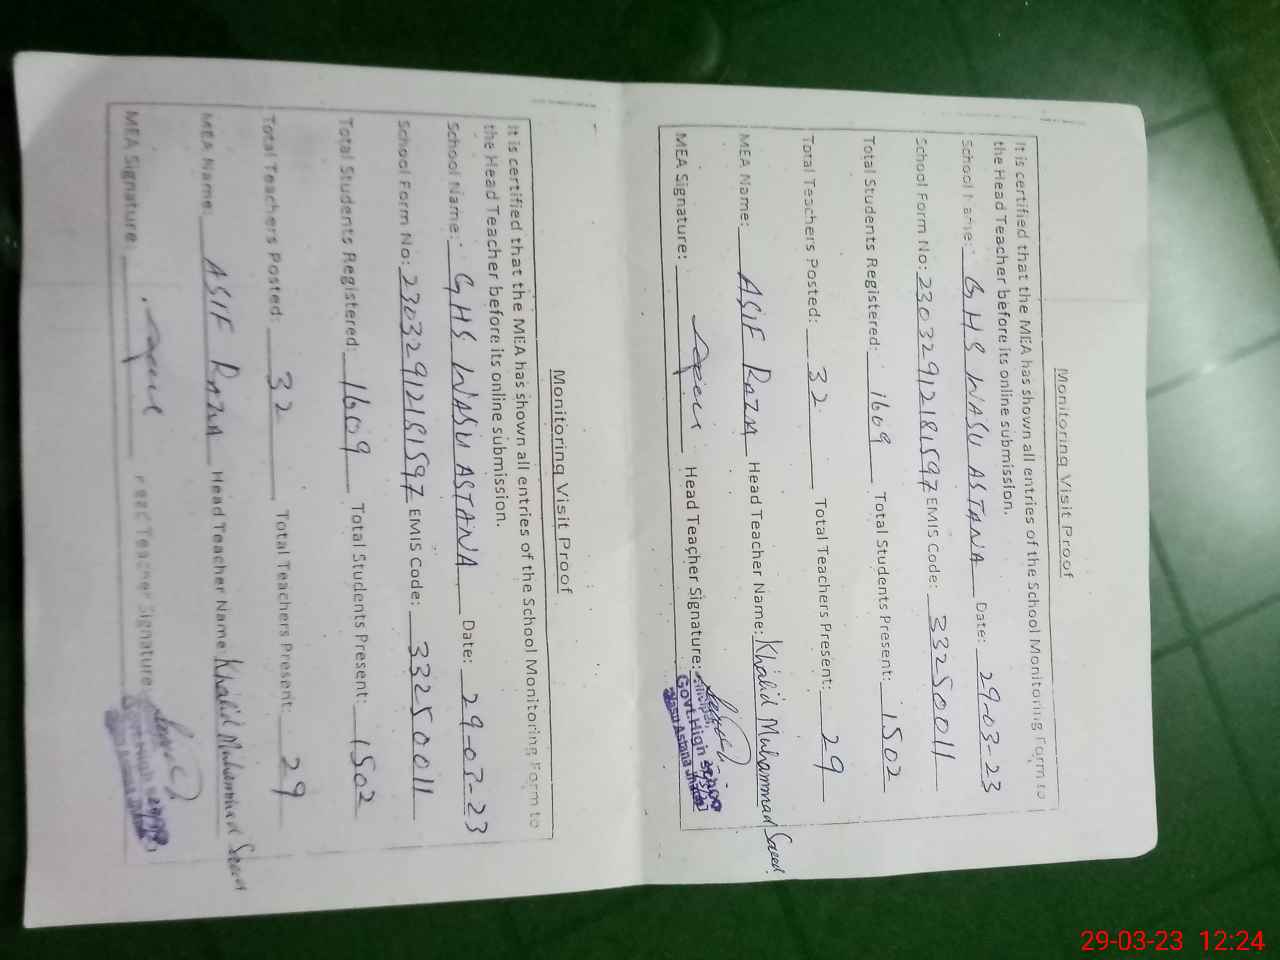 Monitoring Visit Proof
It is certified that the MEA has shown all entries of the School Monitoring Form to
the Head Teacher before its online submission.
School Name: GHS WASU ASTANA Date: 29-03-23
School Form No: 23032912181597 EMIS Code: 33250011
Total Students Registered: 1609 Total Students Present: 1502
Total Teachers Posted: 32 Total Teachers Present: 29
MEA Name: ASIF RAZA Head Teacher Name: Khalid Muhammad Saeed
MEA Signature: Head Teacher Signature:
Govt. High
Wasu Astana
Monitoring Visit Proof
It is certified that the MEA has shown all entries of the School Monitoring Form to
the Head Teacher before its online submission.
School Name: GHS WASU ASTANA Date: 29-03-23
School Form No: 23032912181597 EMIS Code: 33250011
Total Students Registered: 1609 Total Students Present: 1502
Total Teachers Posted: 32 Total Teachers Present: 29
MEA Name: ASIF RAZA Head Teacher Name: Khalid Muhammad Saeed
MEA Signature: Head Teacher Signature
29-03-23 12:24